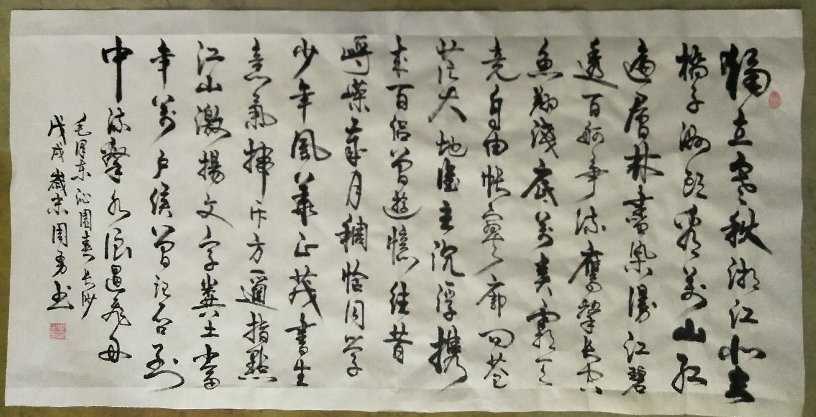 独立寒秋湘江北去
橘子洲头看万山红
遍层林尽染漫江碧
透百舸争流鹰击长空
鱼翔浅底万类霜天
竞自由怅寥廓问苍
茫大地谁主沉浮携
来百侣曾游忆往昔
峥嵘岁月稠恰同学
少年风华正茂书生
意气挥斥方遒指点
江山激扬文字粪土当
年万户侯曾记否到
中流击水浪遏飞舟
毛泽东沁园春长沙
戊戌岁末周勇书